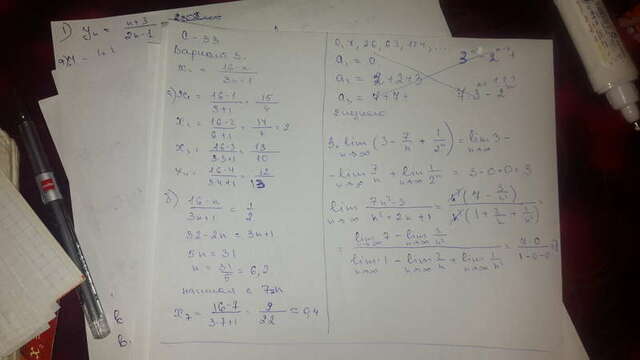 1) yₙ = n+3 / 2n-1 =
C-33
Вариант 3.
xₙ = 16-n / 3n+1
a) x₁ = 16-1 / 3+1 = 15 / 4
x₂ = 16-2 / 6+1 = 14 / 7 = 2
x₃ = 16-3 / 3·3+1 = 13 / 10
x₄ = 16-4 / 3·4+1 = 12 / 13
б)
16-n / 3n+1 = 1 / 2
32-2n = 3n+1
5n = 31
n = 31 / 5 = 6,2
начиная с 7
x₇ = 16-7 / 3·7+1 = 9 / 22 ≈ 0,4
0, 7, 26, 63, 124, ...
a₁ = 0
a₂ = 2+2+3
a₃ = 7+7+
3. lim n→∞ (3 - 7/n + 1/2ⁿ) = lim n→∞ 3 -
- lim n→∞ 7/n + lim n→∞ 1/2ⁿ = 3-0+0=3
lim n→∞ 7n²-3 / n²+2n+1 = n²(7 - 3/n²) / n²(1 + 2/n + 1/n²) =
= lim n→∞ 7 - lim n→∞ 3/n² / lim n→∞ 1 - lim n→∞ 2/n + lim n→∞ 1/n² = 7-0 / 1-0-0